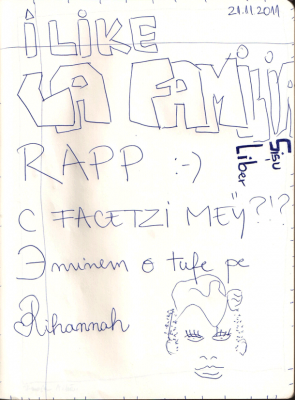 21.11.2011
i LiKE
LA FAMiLiA
Sișu
Liber
RAPP :-)
C FACETZI MEÿ?!?
Eminem o tufe pe
Rihannah